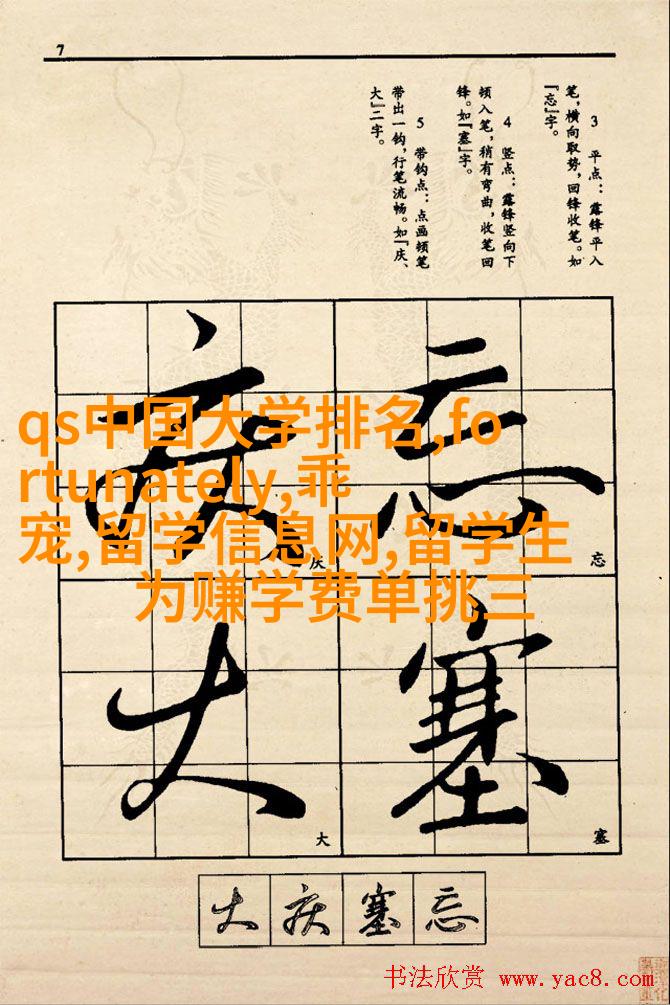 7
3 平点：露锋平入
笔，横向取势，回锋收笔。如
『忘』字。
4 竖点：露锋竖向下
顿入笔，稍有弯曲，收笔回
锋。如『塞』字。
5 带钩点：点画顿笔
带出一钩，行笔流畅。如『庆、
大』二字。
qs中国大学排名,fo
rtunately,乖
宠,留学信息网,留学生
为赚学费单挑三
忘
庆
塞
大
忘
庆
塞
大
大庆塞忘
书法欣赏 www.yac8.com